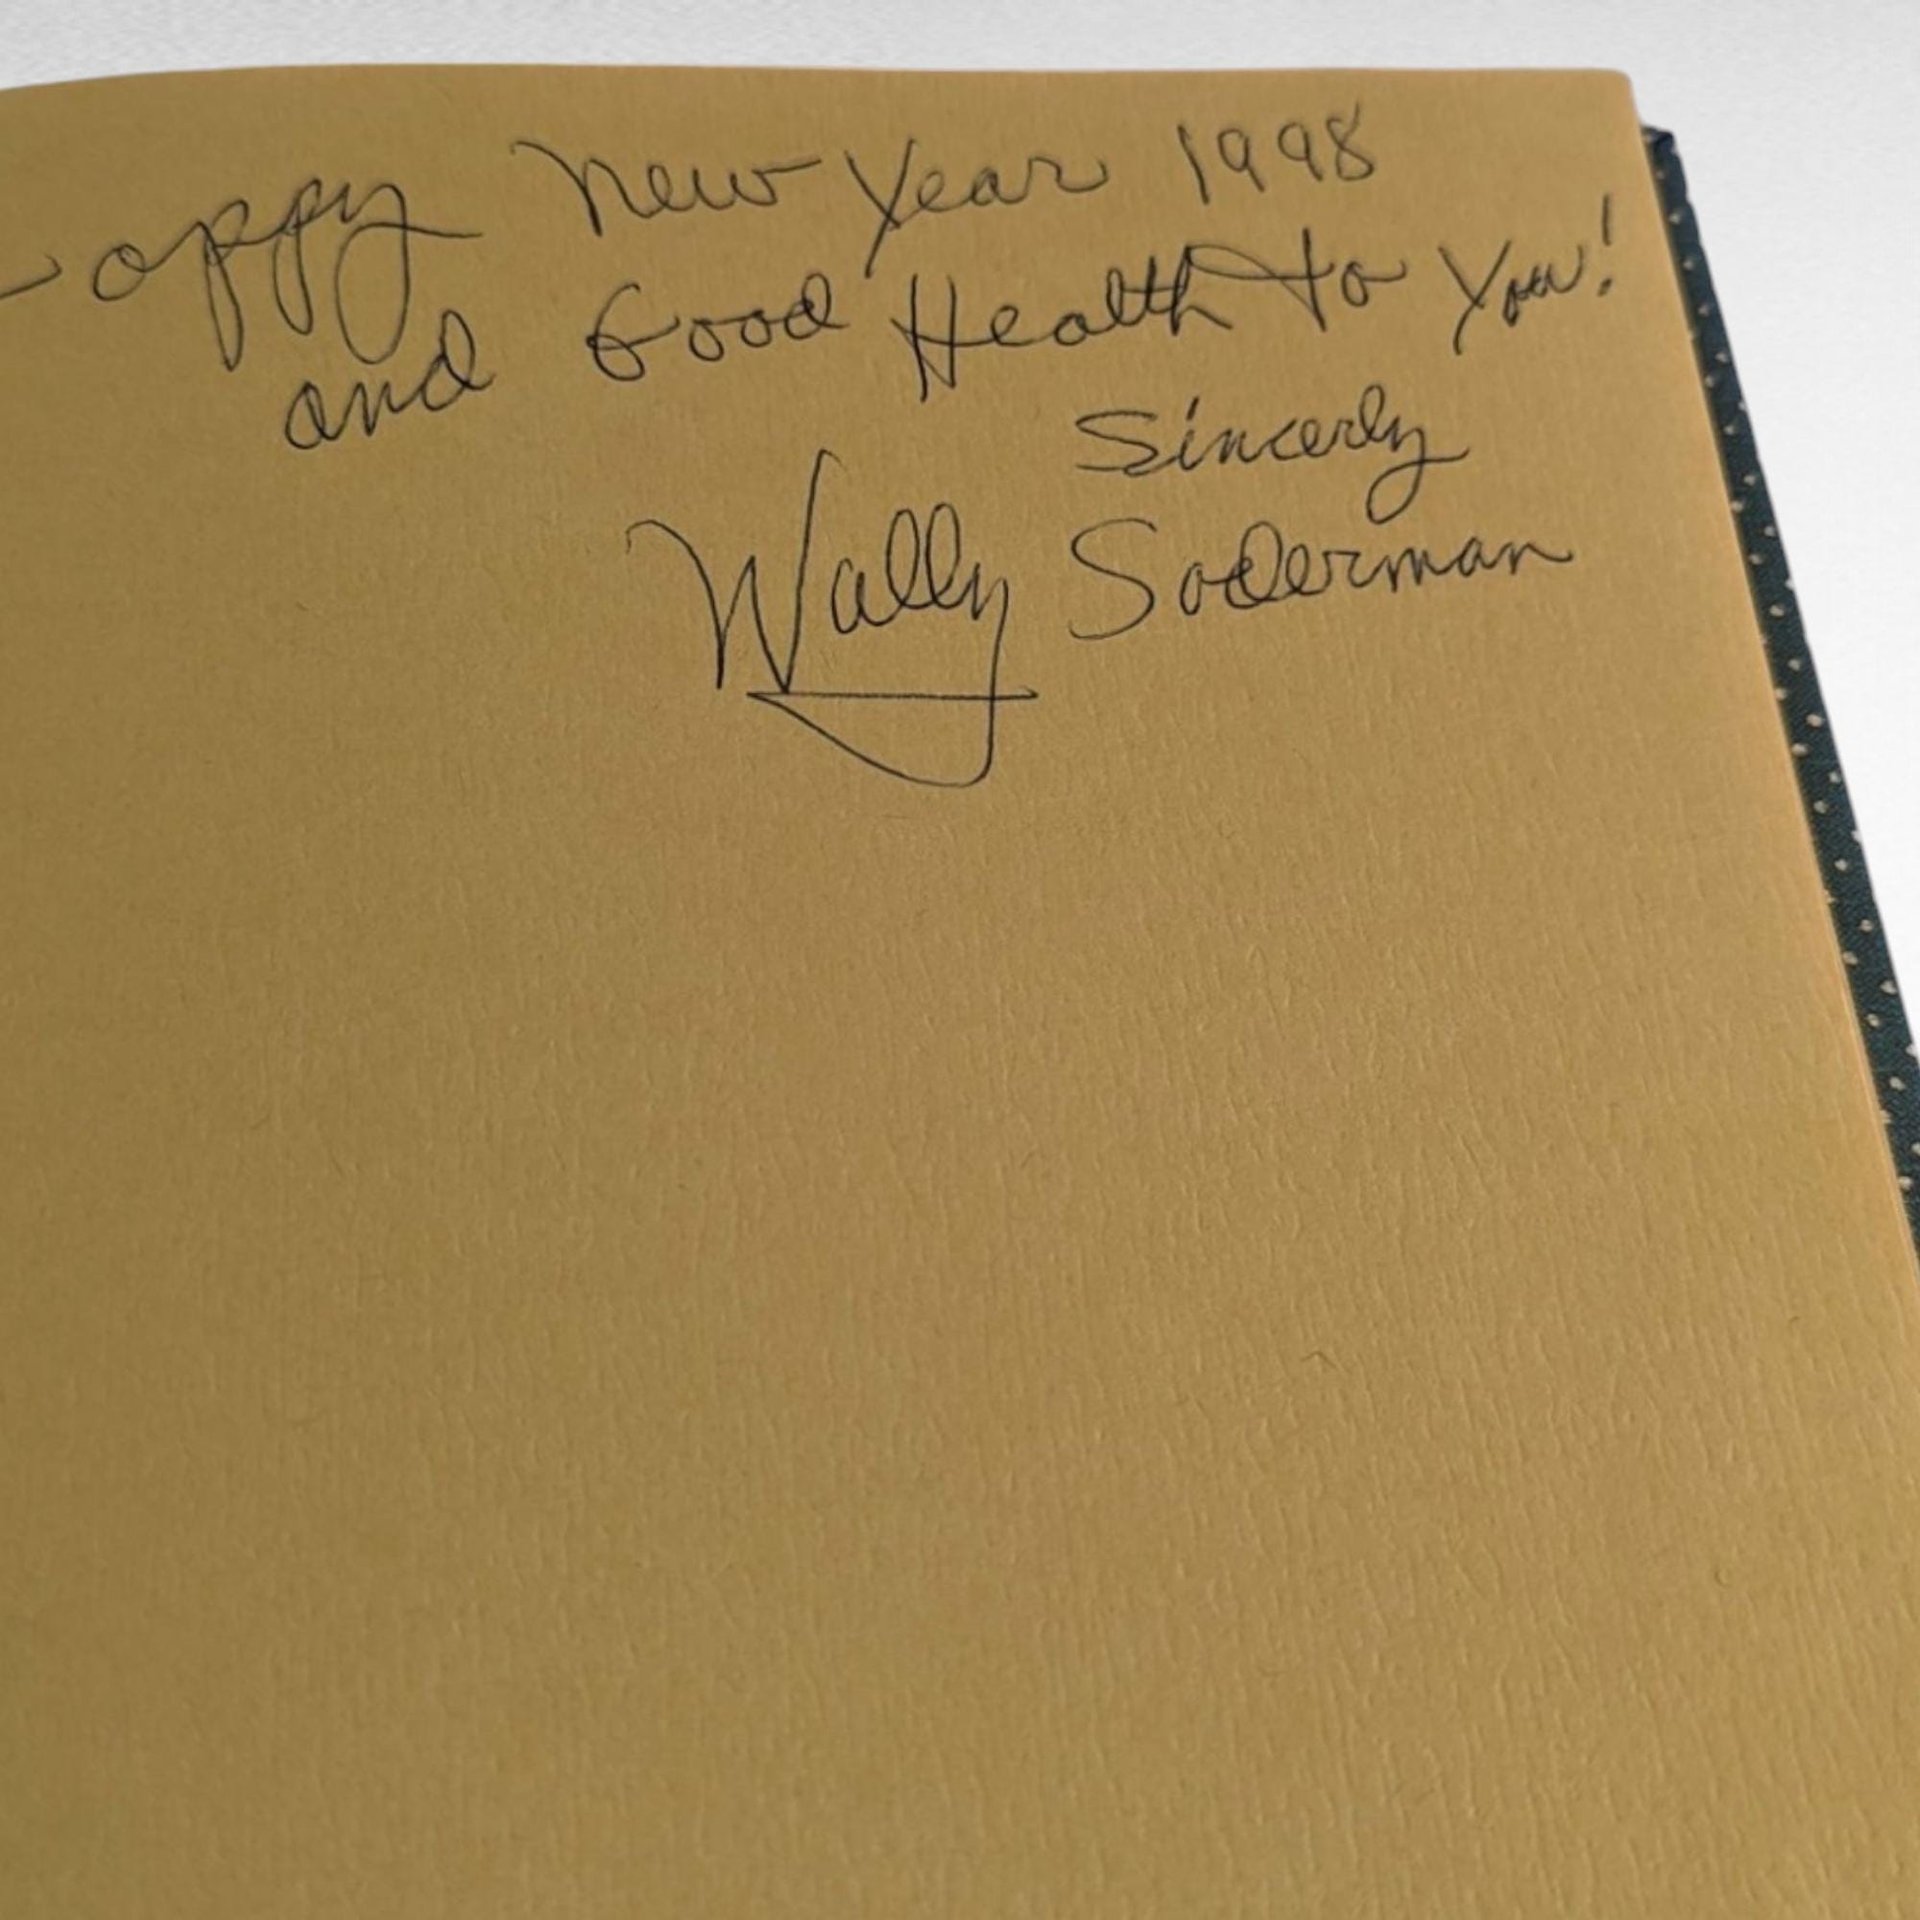 Happy New Year 1998
and Good Health to You!
Sincerly
Wally Soderman